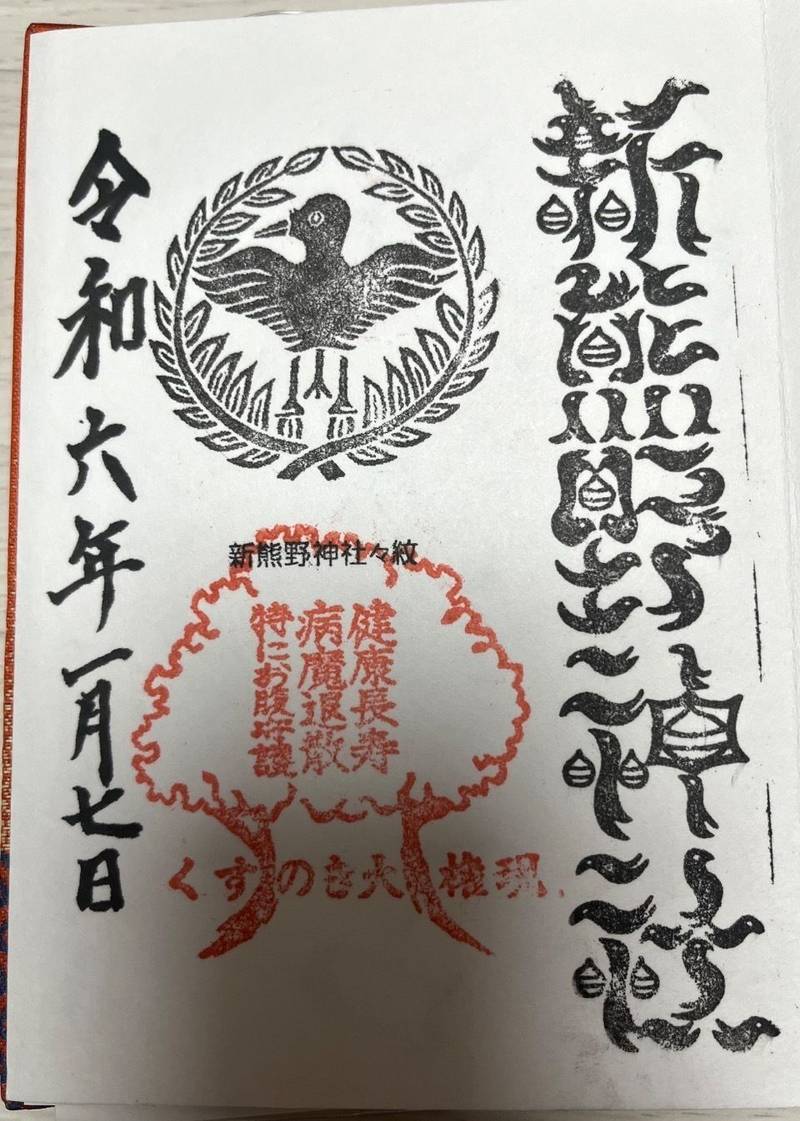 新熊野神社
新熊野神社々紋
健康長寿
病魔退散
特にお腹守護
くすのき大権現
令和六年一月七日